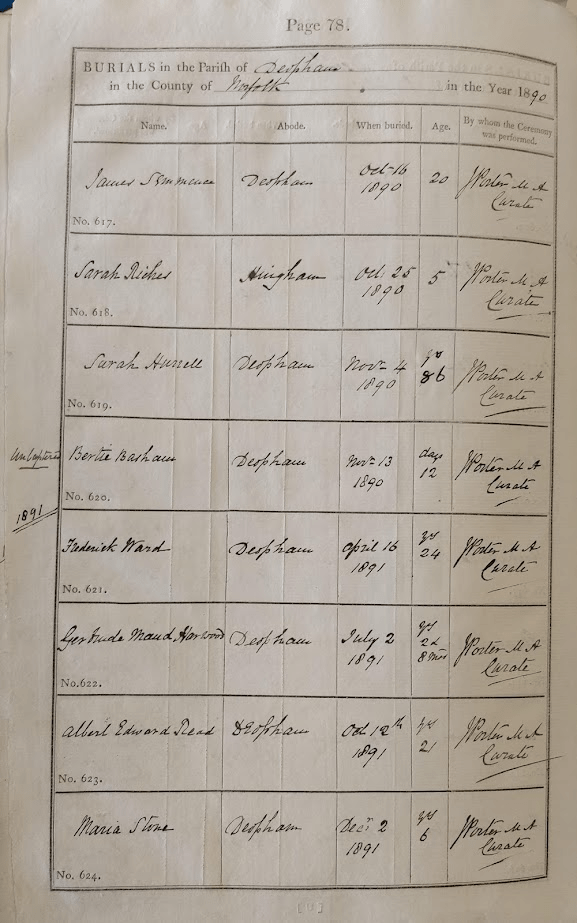 Page 78.
BURIALS in the Parish of Deopham
in the County of Norfolk in the Year 1890
Name. Abode. When buried. Age. By whom the Ceremony was performed.
James Semmence Deopham Oct 16 1890 20 J Porter M A Curate
No. 617.
Sarah Riches Hingham Oct: 25 1890 5 J Porter M A Curate
No. 618.
Sarah Hurrell Deopham Novr 4 1890 yrs 86 J Porter M A Curate
No. 619.
Unbaptized Bertie Basham Deopham Novr 13 1890 days 12 J Porter M A Curate
No. 620.
1891
Frederick Ward Deopham April 16 1891 yrs 24 J Porter M A Curate
No. 621.
Gertrude Maud Harwood Deopham July 2 1891 yrs 8 mos J Porter M A Curate
No.622.
Albert Edward Read Deopham Oct 12th 1891 yrs 21 J Porter M A Curate
No. 623.
Maria Stone Deopham Decr 2 1891 yrs 6 J Porter M A Curate
No. 624.